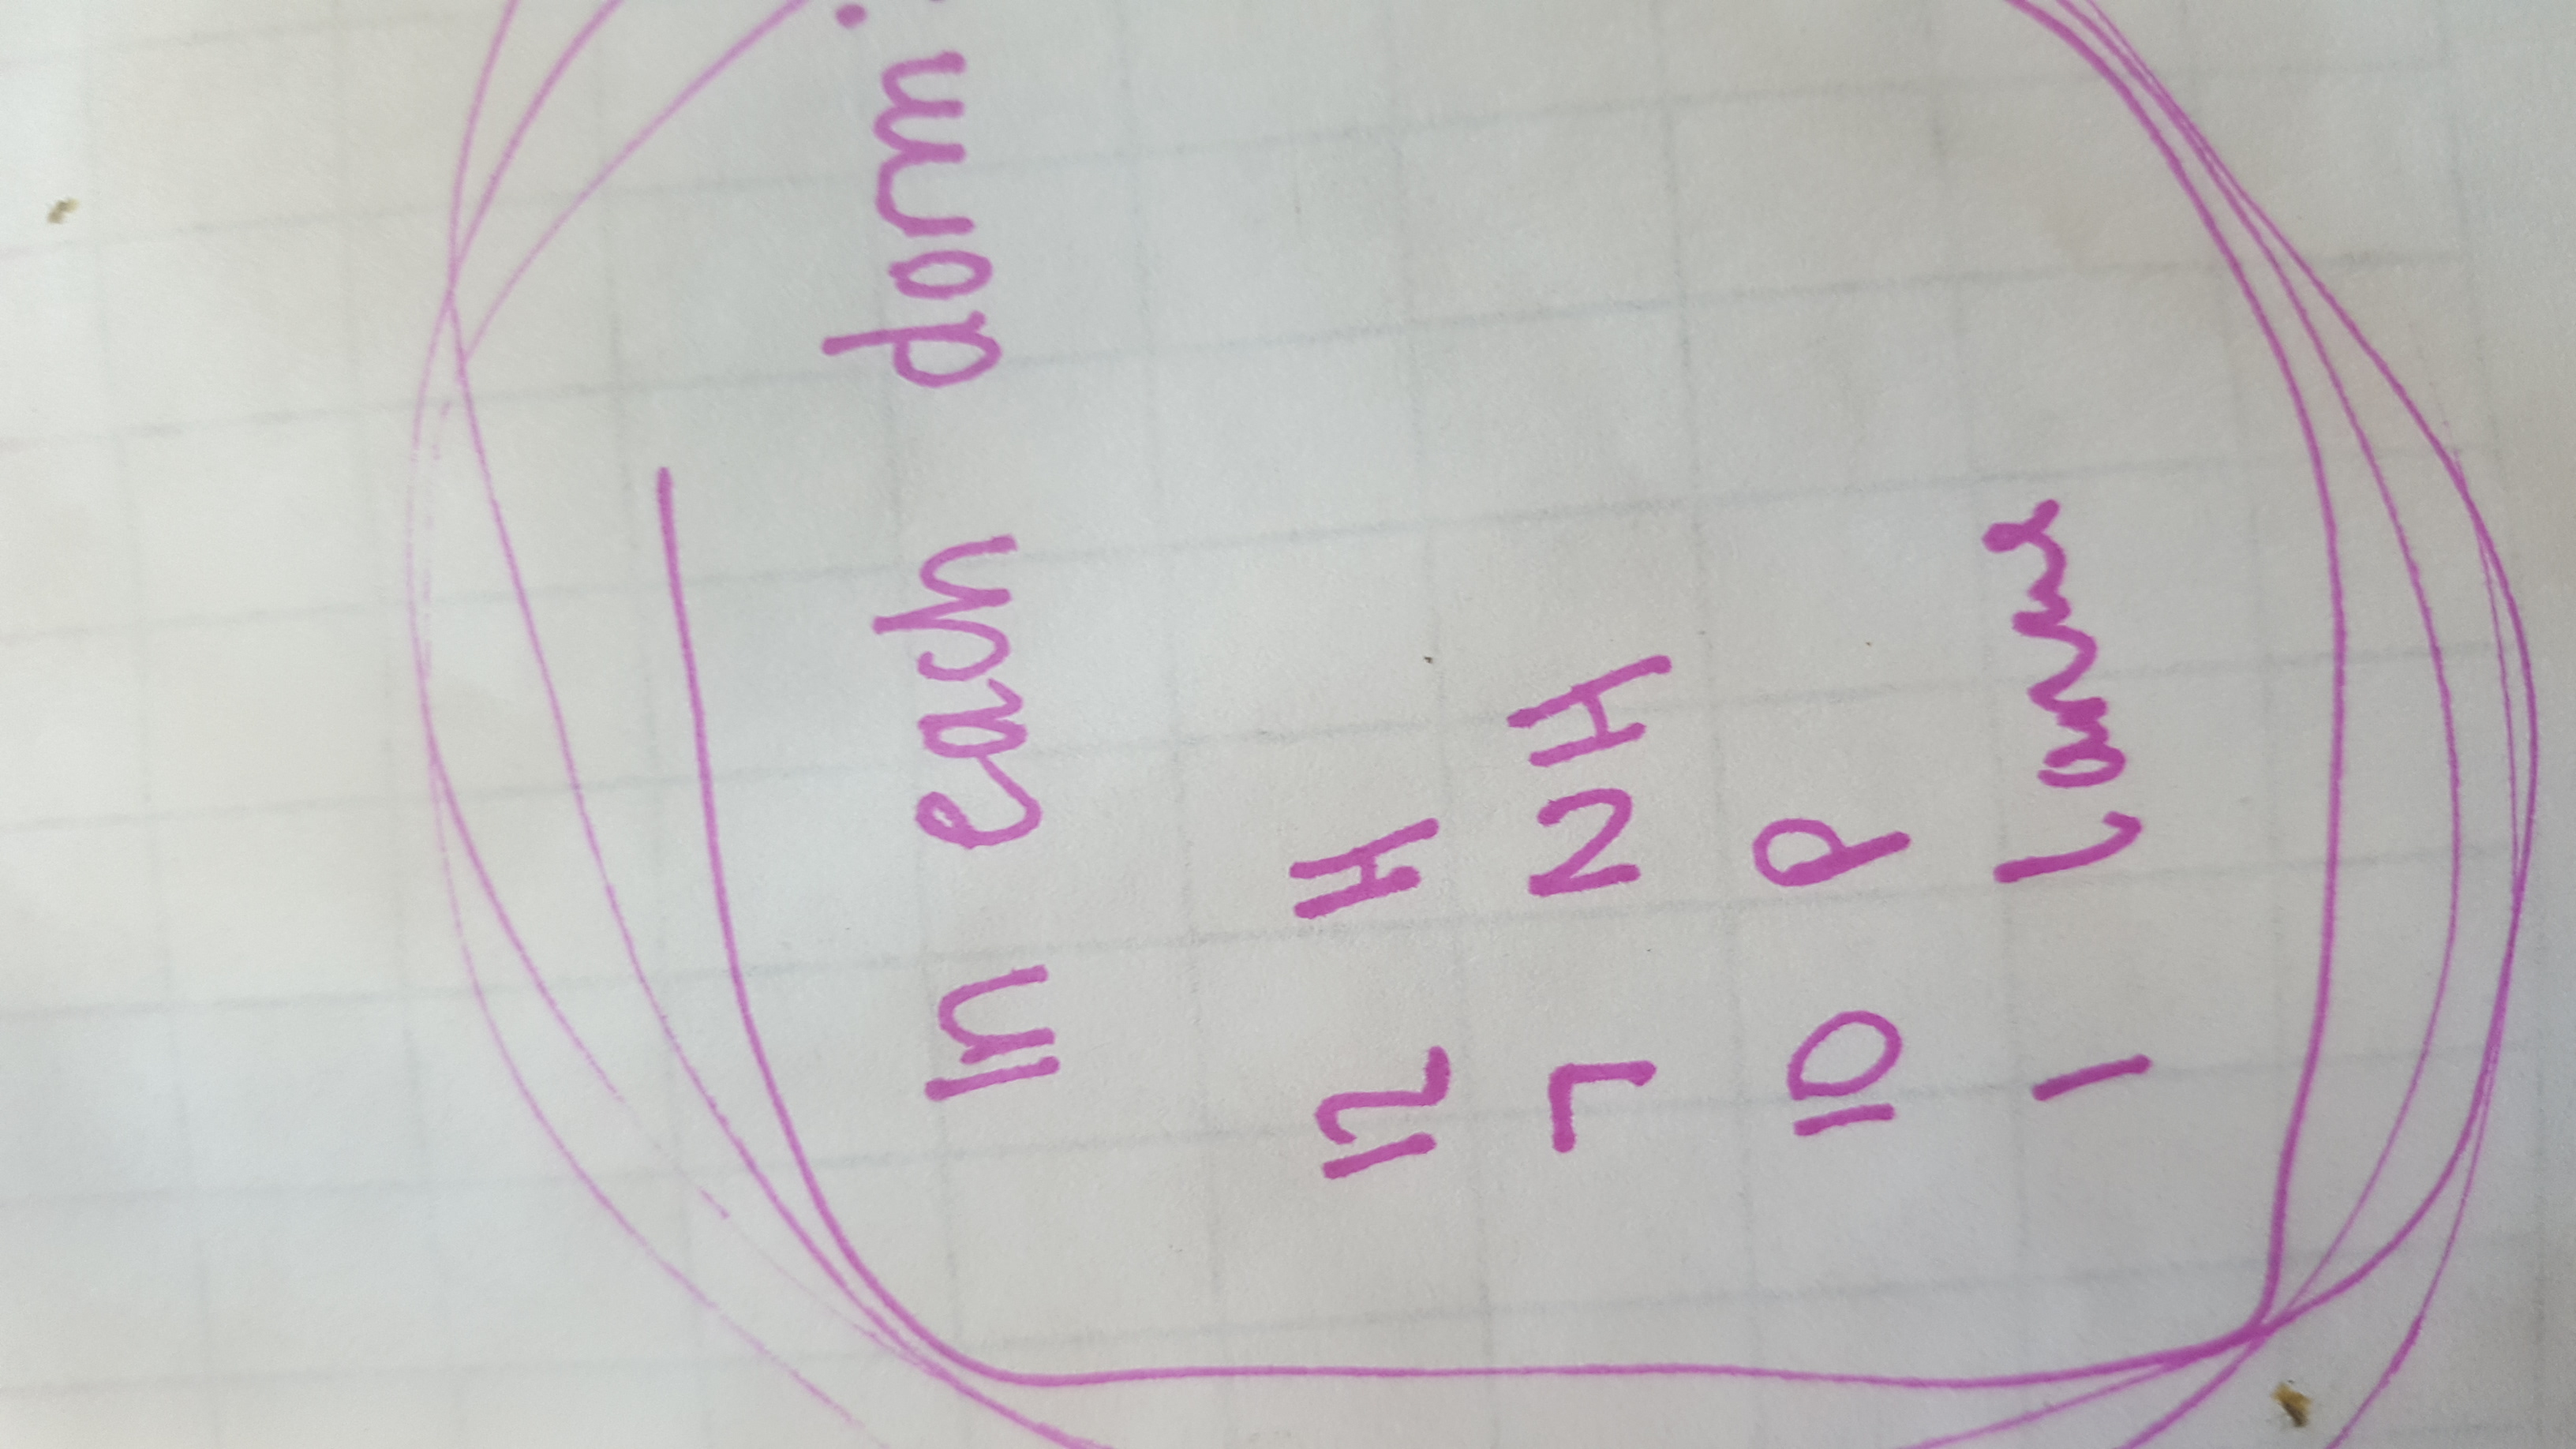 In each dorm:
12 H
7 NH
10 P
1 larvae